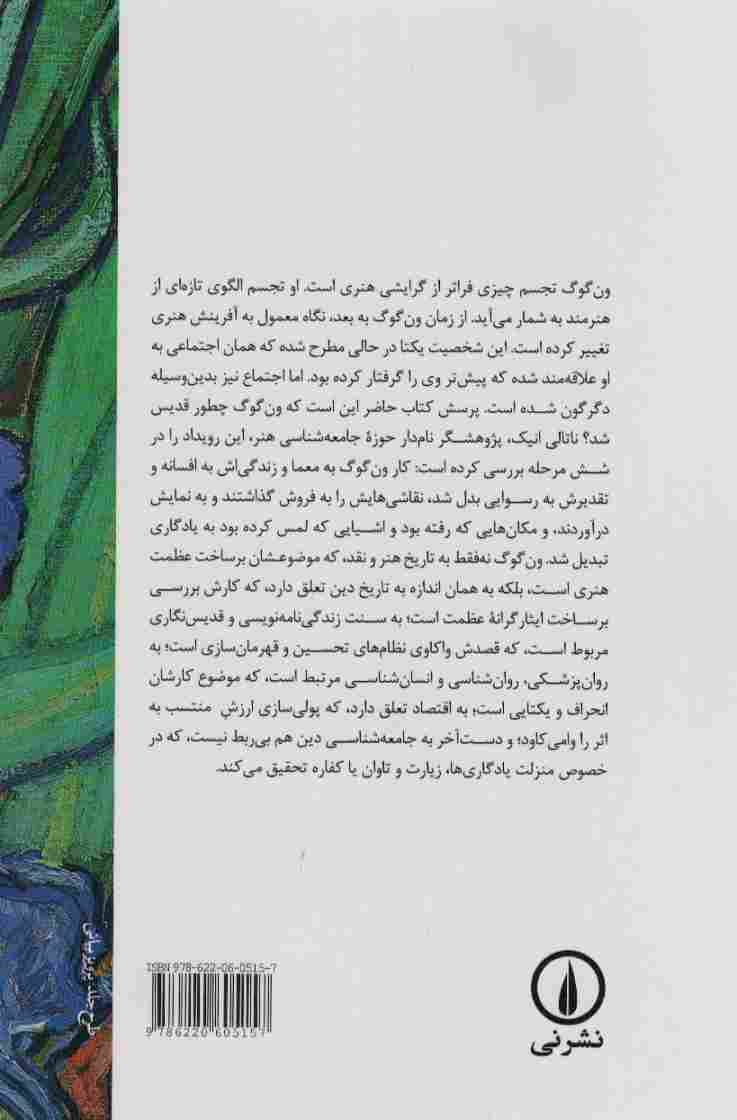 ون‌گوگ تجسم چیزی فراتر از گرایشی هنری است. او تجسم الگوی تازه‌ای از
هنرمند به شمار می‌آید. از زمان ون‌گوگ به بعد، نگاه معمول به آفرینش هنری
تغییر کرده است. این شخصیت یکتا در حالی مطرح شده که همان اجتماعی به
او علاقه‌مند شده که پیش‌تر وی را گرفتار کرده بود. اما اجتماع نیز بدین‌وسیله
دگرگون شده است. پرسش کتاب حاضر این است که ون‌گوگ چطور قدیس
شد؟ ناتالی انیک، پژوهشگر نام‌دار حوزهٔ جامعه‌شناسی هنر، این رویداد را در
شش مرحله بررسی کرده است: کار ون‌گوگ به معما و زندگی‌اش به افسانه و
تقدیرش به رسوایی بدل شد، نقاشی‌هایش را به فروش گذاشتند و به نمایش
درآوردند، و مکان‌هایی که رفته بود و اشیایی که لمس کرده بود به یادگاری
تبدیل شد. ون‌گوگ نه‌فقط به تاریخ هنر و نقد، که موضوعشان برساخت عظمت
هنری است، بلکه به همان اندازه به تاریخ دین تعلق دارد، که کارش بررسی
برساخت ایثارگرانهٔ عظمت است؛ به سنت زندگی‌نامه‌نویسی و قدیس‌نگاری
مربوط است، که قصدش واکاوی نظام‌های تحسین و قهرمان‌سازی است؛ به
روان‌پزشکی، روان‌شناسی و انسان‌شناسی مرتبط است، که موضوع کارشان
انحراف و یکتایی است؛ به اقتصاد تعلق دارد، که پولی‌سازی ارزشِ منتسب به
اثر را وامی‌کاود؛ و دست‌آخر به جامعه‌شناسی دین هم بی‌ربط نیست، که در
خصوص منزلت یادگاری‌ها، زیارت و تاوان یا کفاره تحقیق می‌کند.
ISBN 978-622-06-0515-7
9 786220 605157
نشرنی
طرح جلد: پرویز بیانی